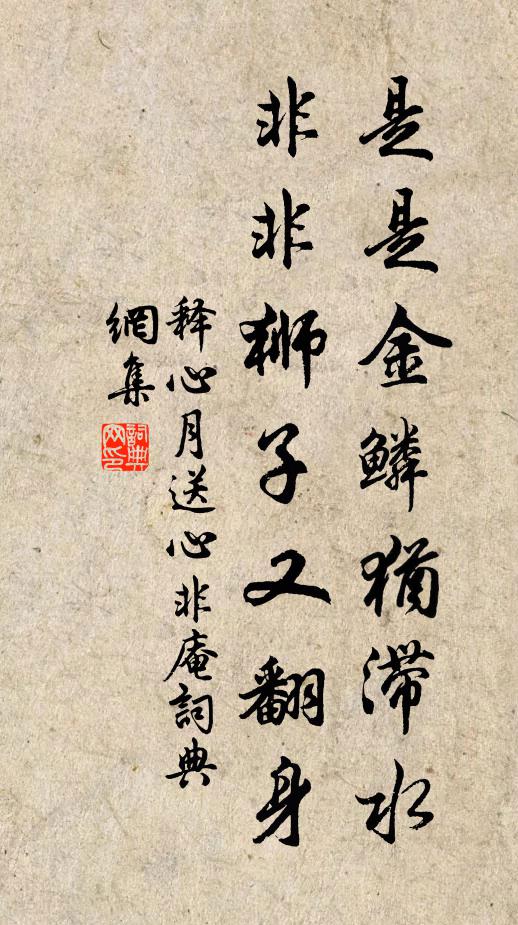 是是金鳞犹滞水
非非狮子又翻身
释心月送心非庵詞典
網集
詞典網印